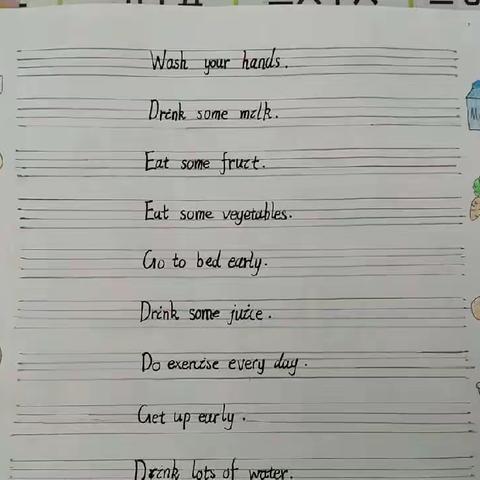 Wash your hands.
Drink some milk.
Eat some fruit.
Eat some vegetables.
Go to bed early.
Drink some juice.
Do exercise every day.
Get up early.
Drink lots of water.